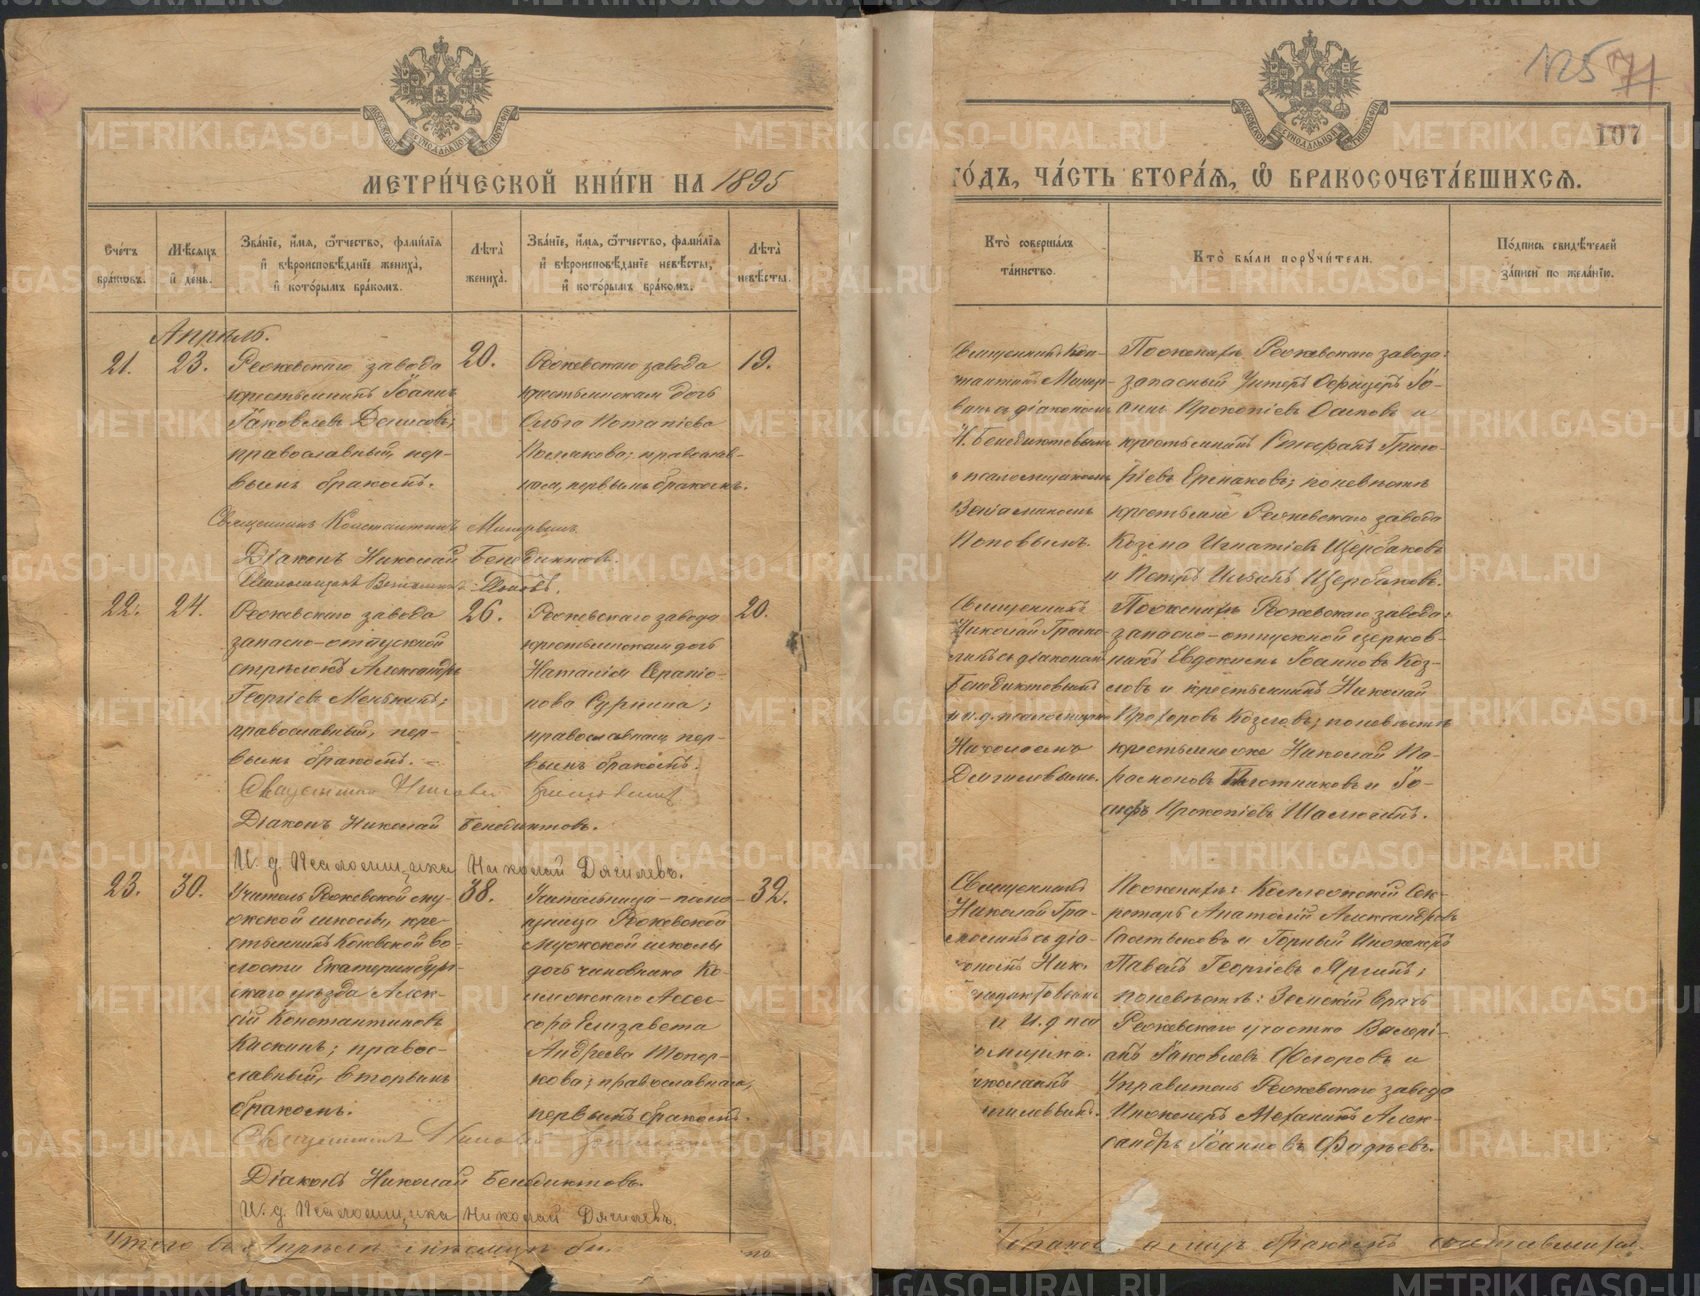 125 71
107
МОСКОВСКОЙ СѴНОДАЛЬНОЙ ТИПОГРАФІИ
МОСКОВСКОЙ СѴНОДАЛЬНОЙ ТИПОГРАФІИ
МЕТРИ́ЧЕСКОЙ КНИ́ГИ НА 1895
ГО́ДЪ, ЧА́СТЬ ВТОРА́Я, Ѡ БРАКОСОЧЕТА́ВШИХСЯ.
Сче́тъ бра́ковъ.
Мѣ́сяцъ и де́нь.
Зва́нїе, и́мя, ѻ́тчество, фами́лїя
и вѣроисповѣ́данїе жениха̀,
и кото́рымъ бра́комъ.
Лѣта̀ жениха̀.
Зва́нїе, и́мя, ѻ́тчество, фами́лїя
и вѣроисповѣ́данїе невѣ́сты,
и кото́рымъ бра́комъ.
Лѣта̀ невѣ́сты.
Кто̀ соверша́лъ
та́инство.
Кто̀ бы́ли порꙋчи́тели.
По́дпись свидѣ́телей
за́писи по жела́нїю.
Апрѣль.
21.
23.
Режевскаго завода
крестьянинъ Іоаннъ
Іаковлевъ Данковъ;
православный, пер-
вымъ бракомъ.
20.
Режевскаго завода
крестьянская дочь
Ольга Потапіева
Полякова; православ-
ная, первымъ бракомъ.
19.
Священникъ Кон-
стантинъ Минер-
винъ съ діакономъ
Н. Бенедиктовымъ
и псаломщикомъ
Веніаминомъ
Поповымъ.
По женихѣ Режевскаго завода:
запасный Унтеръ Офицеръ Іо-
аннъ Прокопіевъ Осиповъ и
крестьянинъ Григо-
ріевъ Ермаковъ; по невѣстѣ
крестьяне Режевскаго завода
Козма Игнатіевъ Щербаковъ
и Петръ Ильинъ Щербаковъ.
Священникъ Константинъ Минервинъ
Діаконъ Николай Бенедиктовъ.
Псаломщикъ Веніаминъ Поповъ.
22.
24.
Режевскаго завода
запасно-отпускной
стрѣлокъ Александръ
Георгіевъ Меньинъ;
православный, пер-
вымъ бракомъ.
26.
Режевскаго завода
крестьянская дочь
Наталія Серапіо-
нова Сурнина;
православная, пер-
вымъ бракомъ.
20.
Священникъ
Николай Грамо-
линъ съ діакономъ
Бенедиктовымъ
и и.д. псаломщика
Николаемъ
Дягилевымъ.
По женихѣ Режевскаго завода:
запасно-отпускной церков-
никъ Евдокимъ Іоанновъ Коз-
ловъ и крестьянинъ Николай
Прохоровъ Козловъ; по невѣстѣ
крестьяне оже Николай Па-
рамоновъ Плотниковъ и Іо-
сифъ Прокопіевъ Шалюгинъ.
Священникъ Николай
Діаконъ Николай Бенедиктовъ.
И. д. Псаломщика Николай Дягилевъ.
23.
30.
Учитель Режевской му-
жской школы, кре-
стьянинъ Коневской во-
лости Екатеринбург-
скаго уѣзда Алек-
сій Константиновъ
Каскинъ; правос-
лавный, вторымъ
бракомъ.
38.
Учительница-помо-
щница Режевской
мужской школы
дочь чиновника Ко-
лложскаго Ассес-
сора Елизавета
Андреева Топор-
кова; православная,
первымъ бракомъ.
32.
Священникъ
Николай Гра-
молинъ съ діа-
кономъ Ник.
и и.д. пса-
ломщика
По женихѣ: Коллежскій Сек-
ретарь Анатолій Александровъ
Салтыковъ и Горный Инженеръ
Павелъ Георгіевъ Яргинъ;
по невѣстѣ: Земскій врачъ
Режевскаго участка Валері-
анъ Іаковлевъ Фегоровъ и
Управитель Режевскаго завода
Инженеръ Механикъ Алек-
сандръ Іоанновъ Фадѣевъ.
Священникъ Николай
Діаконъ Николай Бенедиктовъ.
И. д. Псаломщика Николай Дягилевъ.
Итого въ Апрѣлѣ мѣсяцѣ